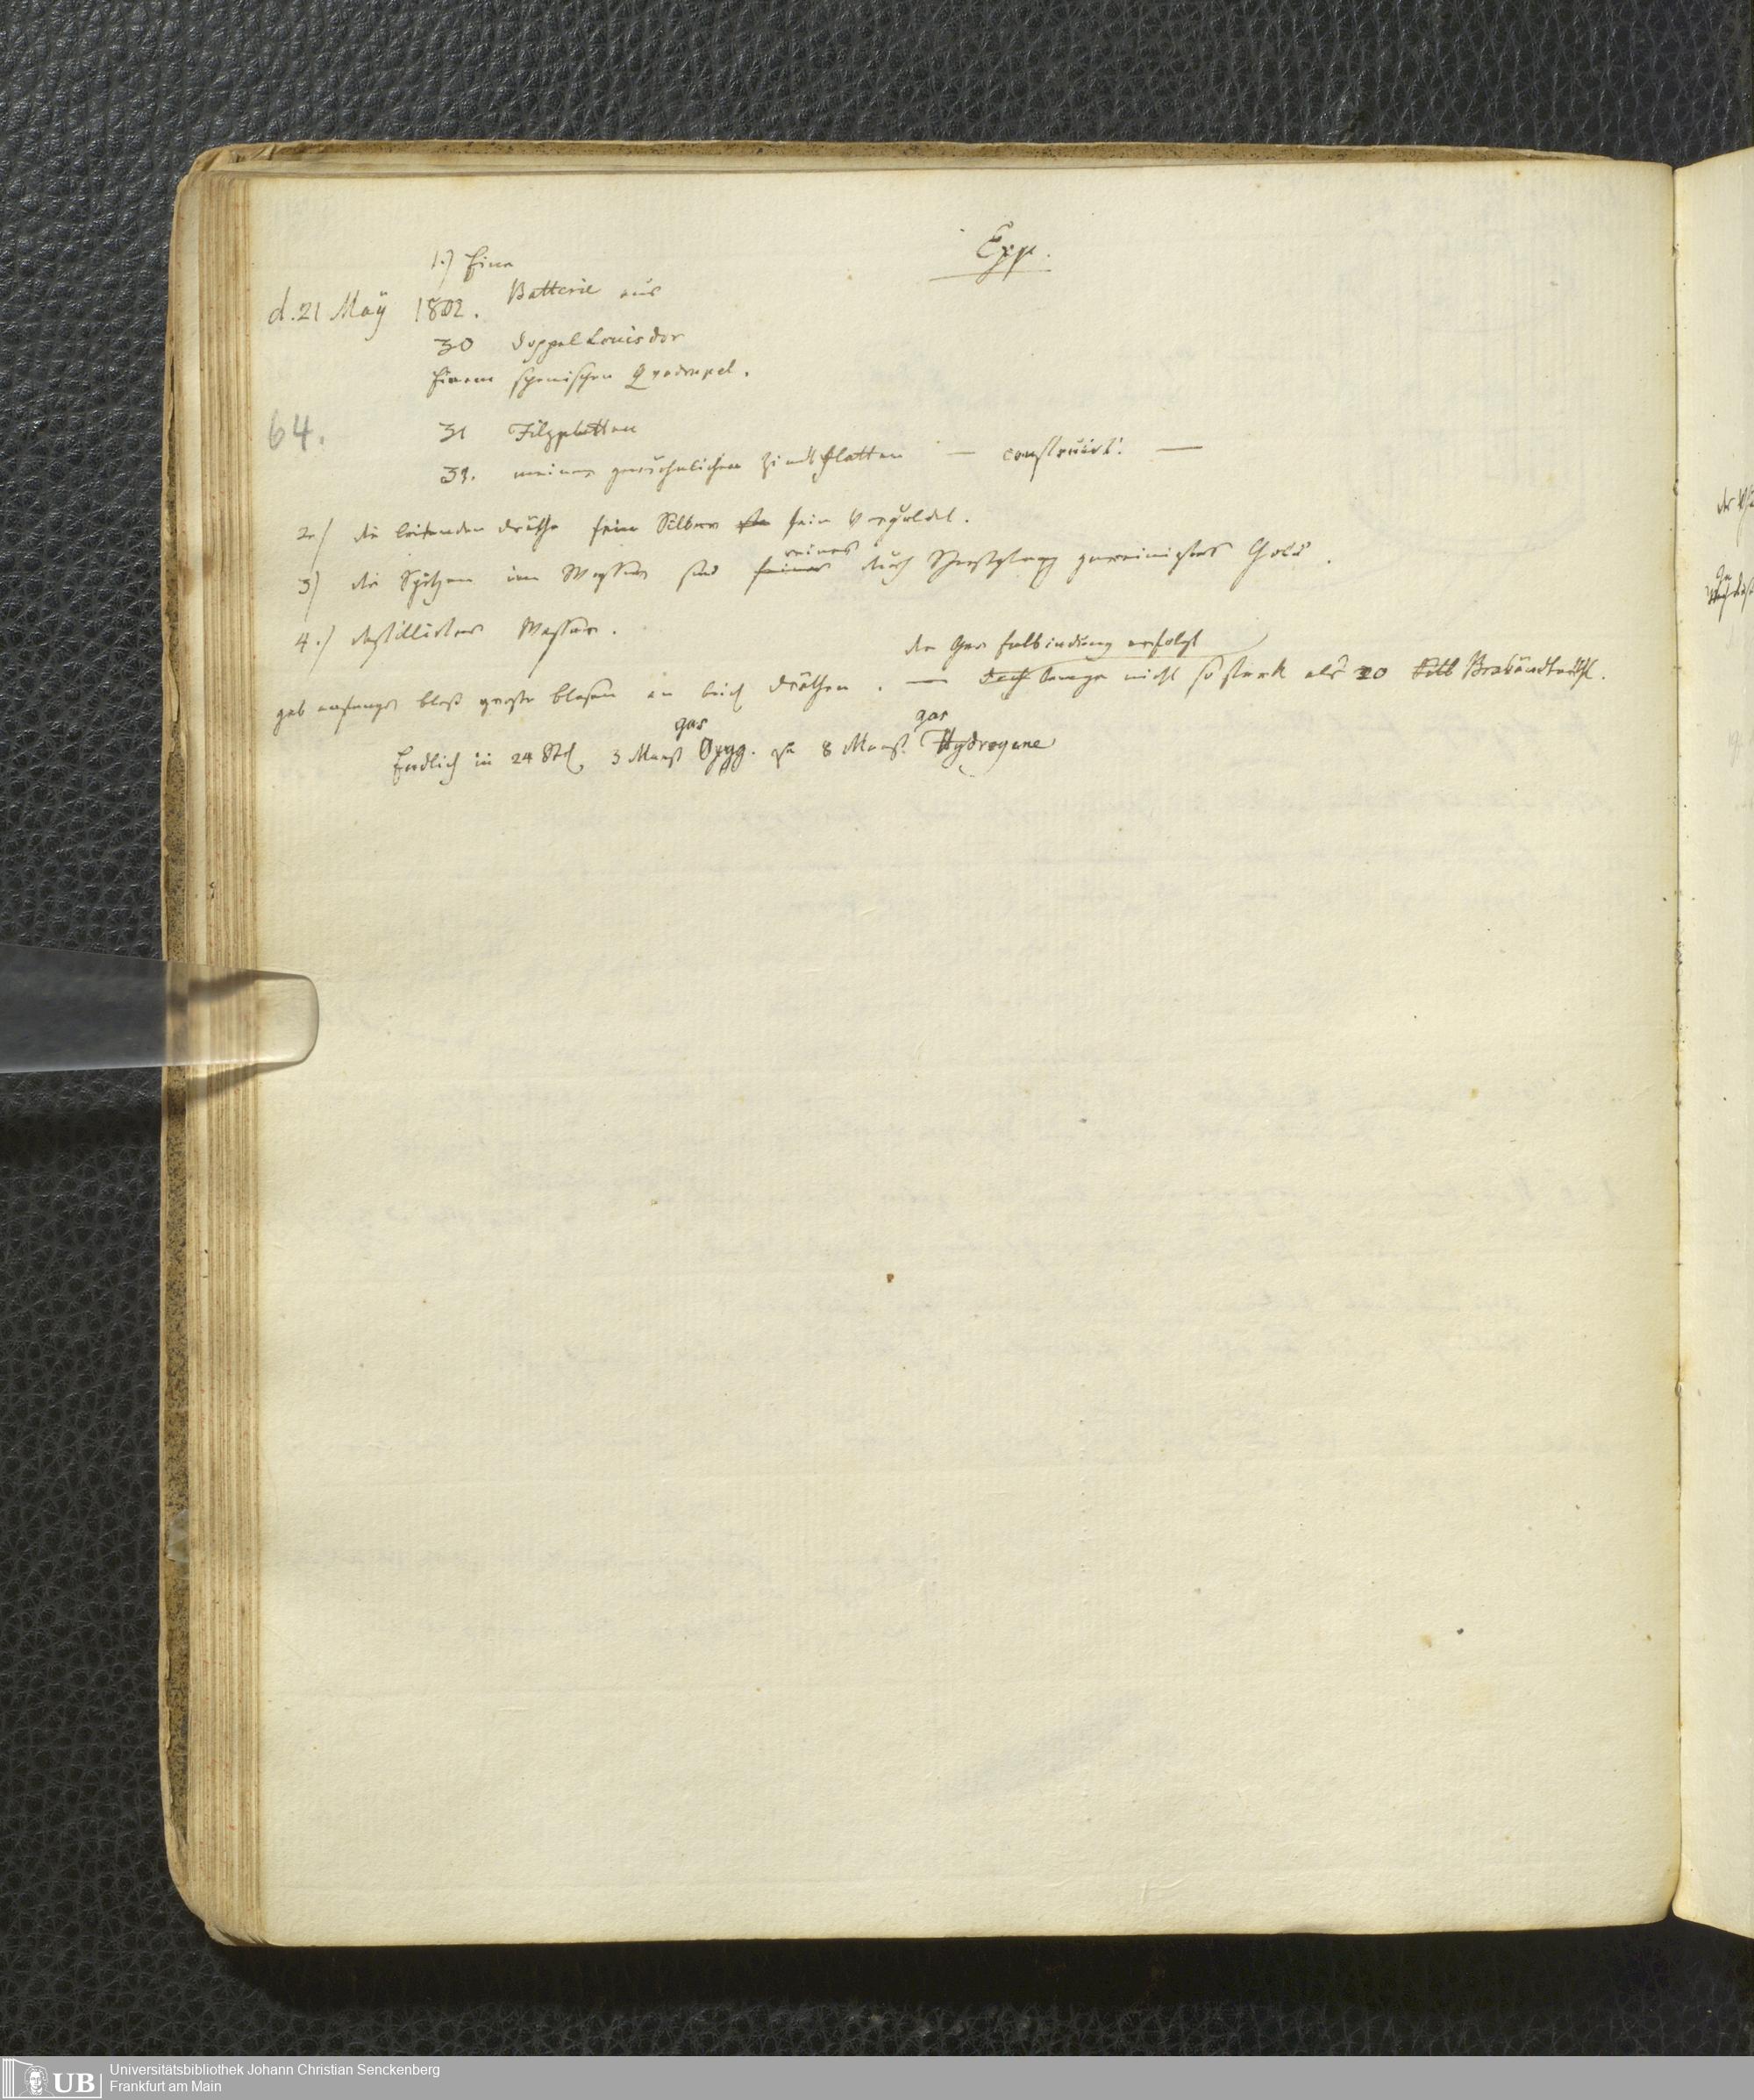 Exp.
1.) Eine
d. 21 Maÿ 1802. Batterie aus
30 Doppel Louisdor
Einem spanischen Quadrupel.
64.
31 Filzplatten
31. meiner gewöhnlichen Zinkplatten — construirt! —
2.) die leitenden Dräthe fein Silber fein Verguldet.
reines
3) die Spitzen im Wasser sind feines durch Spiesglanz gereinigtes Gold.
4.) destillirtes Wasser.
die Gas Entbindung erfolgt
gab anfangs bloß große blasen an beid Dräthen. — Doch lange nicht so stark als 20 Brabandter
gas gas
Endlich in 24 Std. 3 Maaß Oxyg. zu 8 Maaß. Hydrogene